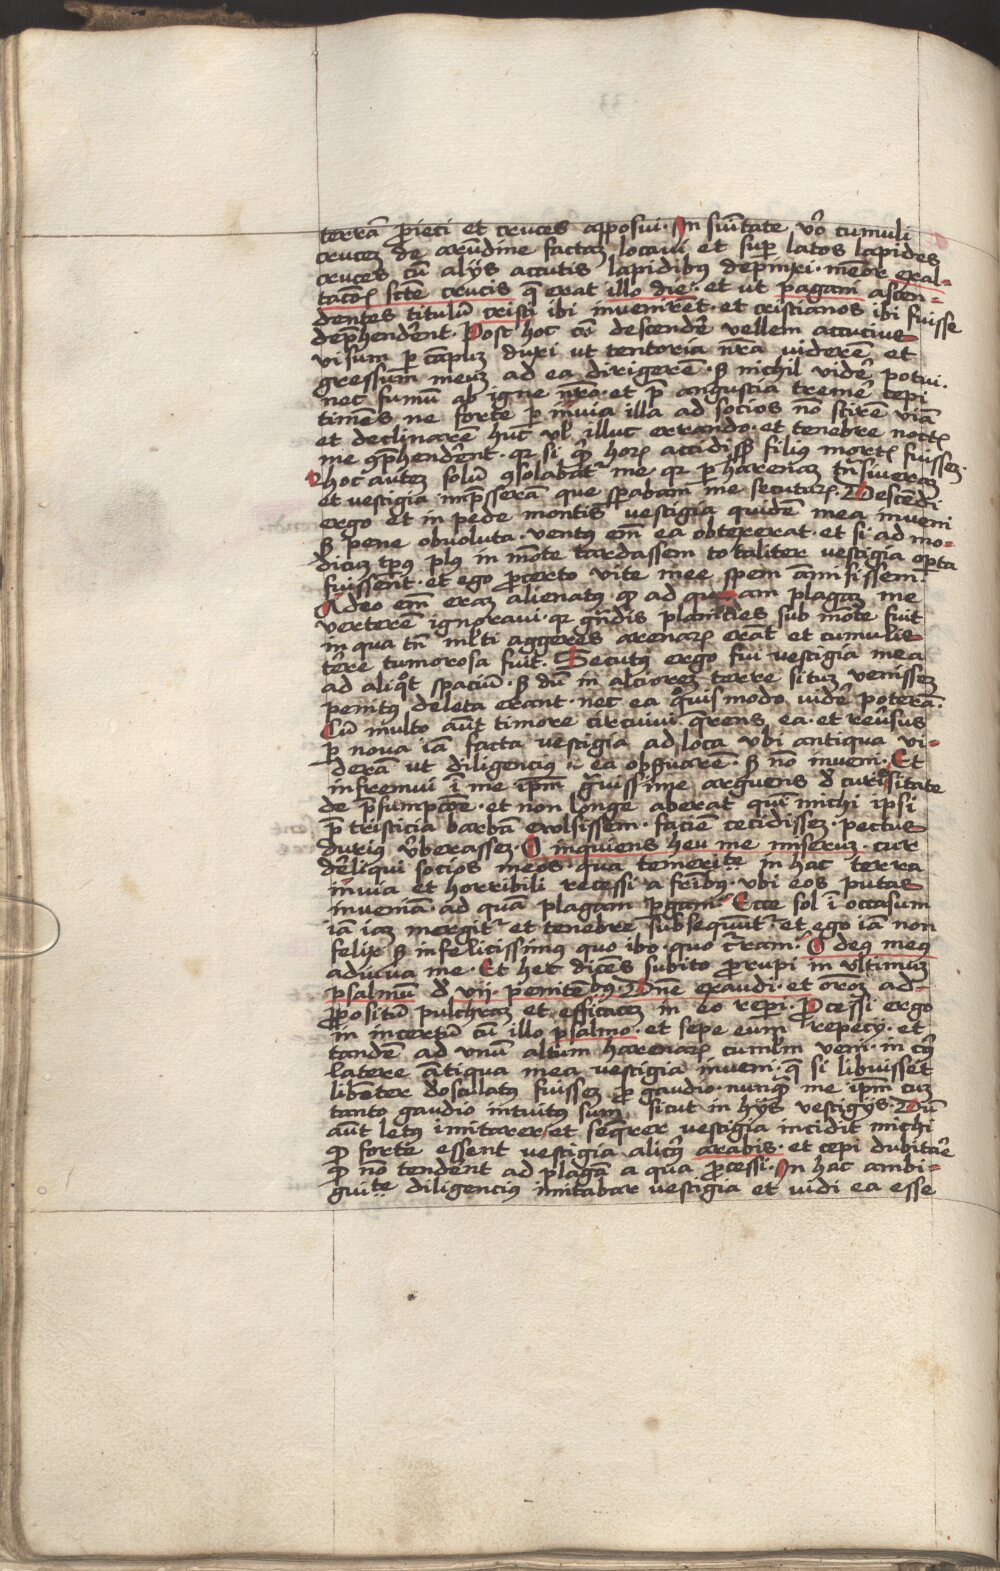 terrā ꝓieci et cruces apposui. In sūītate vͦo cumuli
crucem de arūdine factam locaui et suꝑ latos lapides
cruces cū alijs accutis lapidibꝰ depinxi. memor exal-
tacōis scte crucis q̄ erat illo die. et ut pagani ascen-
dentes titulū cristi ibi inuenirent. et cristianos ibi fuisse
dep̄henderent. Post hoc cū descendē vellem accucius
visum ꝑ campum duxi ut tentoria nr̄a viderē et
gressum meum ad ea dirigerē. sꝫ nichil vidē potui.
nec fumū ab igne nr̄o. et p̄ angustia tremē cepi
timens ne forte ꝑ inuia illa ad socios nō scirē viā
et declinarē huc vl illuc errando. et tenebre noctꝭ
me ꝯp̄henderent. qr si accidissꝫ filius mortꝭ fuissem.
hoc autem solū ꝯsolabatr me qr ꝑ harenam tnsiueram
et vestigia imp̄sserā que sp̄abam me secuturꝝ. Descēdi
ergo et in pede montis vestigia quidē mea inueni
sꝫ pene obuoluta. ventꝰ em ea obtererat. et si ad mo-
dicum tpꝰ plꝰ in mōte tardassem totaliter vestigia oꝑta
fuissent. et ego ꝓcerto vite mee spem āmisissem.
Adeo em eram alienatꝰ ꝙ ad quam plagam me
verterē ignoraui. qr gndis planicies sub mōte fuit
in qua tn mlti aggeres arenarꝝ erāt et cumulis
tēre tumorosa fuit. Secutꝰ ergo fui vestigia mea
ad aliqͦt spaciū. sꝫ dū in alciorem terre situm venissem
penitꝰ deleta erant. nec ea quis modo vidē poterā.
Cū multo aūt timore circuiui q̄rens ea. et reūsus
ꝑ noua iā facta vestigia ad loca vbi antiqua vi-
derā ut diligencius ea obs̄uarē. sꝫ nō inueni. Et
infremui ī me ip̄m g̃uissime arguens d curiositate
de p̄sumpcōe. et non longe aberat quin michi ipsi
p̄ tristicia barbā euulsissem. faciē cecidissem. pectus
durius v̄berassem. O inquiens heu me miserum. cur
dēliqui socios meos. qua temeritate in hac terra
inuia et horribili recessi a fr̄ibꝰ. vbi eos putas
inueniā. ad quā plagam ꝑgam. Ecce sol ī occasum
iā iam mergitr et tenebre subsequūtr. et ego iā non
felix sꝫ infelicissimꝰ quo ibo. quo c̄ram. O deꝰ meꝰ
adiuua me. Et hec dicēs subito ꝓrupi in vltimum
psalmū d vij. penitēbꝰ. Dn̄e exaudi. et orōm ad-
ꝓpositū pulchram et efficacem in eo reperi. Processi ergo
in incertū cū illo psalmo. et sepe eum repecij. et
tandē ad vnū altum harenarꝝ cumlm veni. in cꝰ
latere antiqua mea vestigia inueni. q̄ si libuisset
libēter dosculatꝰ fuissem ꝓ gaudio. nunqͣ me ip̄m cum
tanto gaudio intuitus sum. sicut in hijs vestigijs. Dū
aūt letꝰ imitarer et seqrer vestigia incidit michi
ꝙ forte essent vestigia alicꝰ arabis. et cepi dubitaē
ꝙ nō tenderēt ad plagā a qua ꝓcessi. In hac ambi-
guitate diligencius imitabar vestigia et vidi ea esse